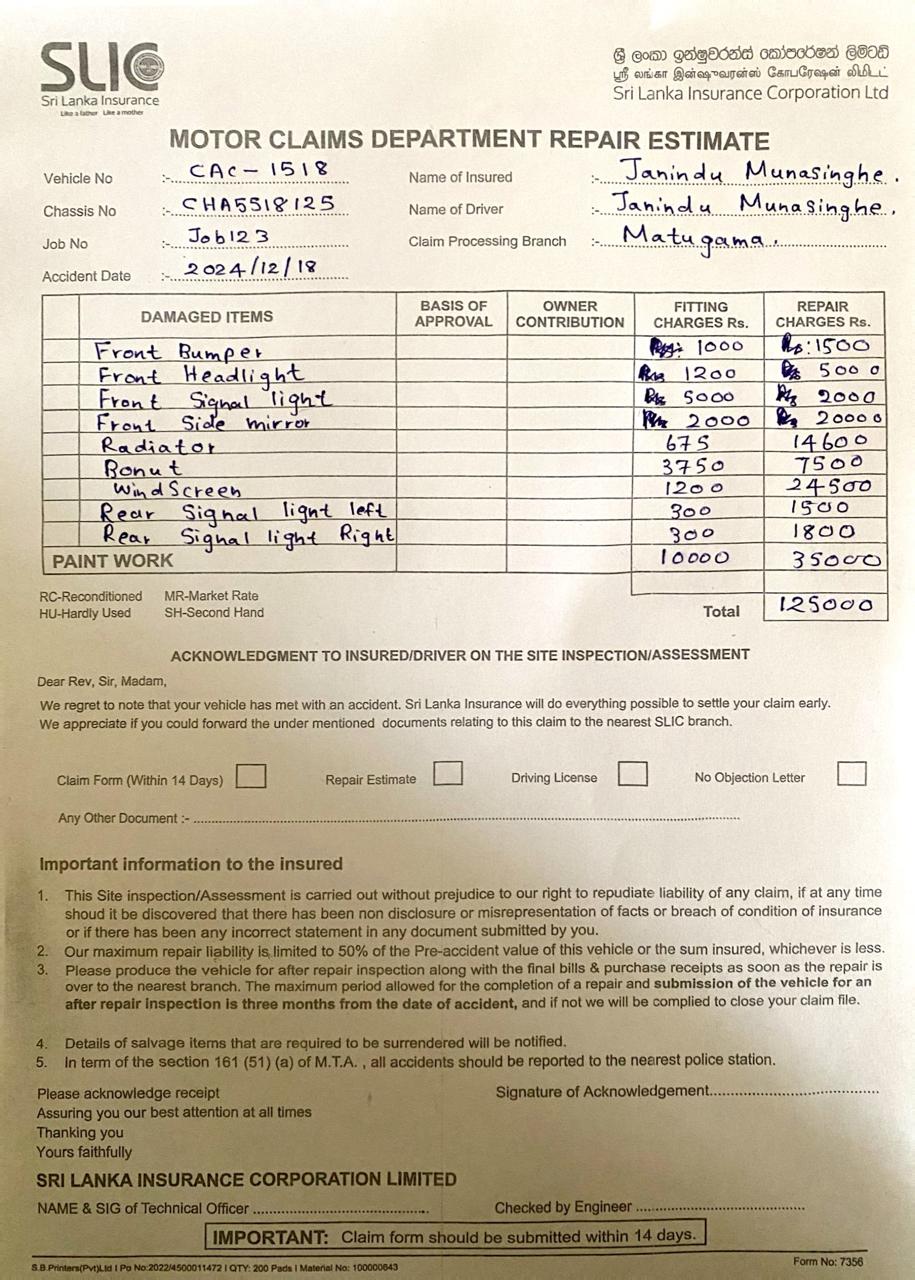 SLIC
Sri Lanka Insurance
Like a father Like a mother
ශ්‍රී ලංකා ඉන්ෂුවරන්ස් කෝපරේෂන් ලිමිටඩ්
ஸ்ரீ லங்கா இன்ஷுவரன்ஸ் கோபரேஷன் லிமிடட்
Sri Lanka Insurance Corporation Ltd
MOTOR CLAIMS DEPARTMENT REPAIR ESTIMATE
Vehicle No :- CAC - 1518 Name of Insured :- Janindu Munasinghe.
Chassis No :- CHA5518125 Name of Driver :- Janindu Munasinghe.
Job No :- Job123 Claim Processing Branch :- Matugama.
Accident Date :- 2024/12/18
DAMAGED ITEMS BASIS OF APPROVAL OWNER CONTRIBUTION FITTING CHARGES Rs. REPAIR CHARGES Rs.
Front Bumper 1000 Rs: 1500
Front Headlight 1200 Rs 5000
Front Signal light 5000 Rs 2000
Front Side mirror 2000 Rs 20000
Radiator 675 14600
Bonut 3750 7500
WindScreen 1200 24500
Rear Signal light left 300 1500
Rear Signal light Right 300 1800
PAINT WORK 10000 35000
RC-Reconditioned MR-Market Rate
HU-Hardly Used SH-Second Hand
Total 125000
ACKNOWLEDGMENT TO INSURED/DRIVER ON THE SITE INSPECTION/ASSESSMENT
Dear Rev, Sir, Madam,
We regret to note that your vehicle has met with an accident. Sri Lanka Insurance will do everything possible to settle your claim early.
We appreciate if you could forward the under mentioned documents relating to this claim to the nearest SLIC branch.
Claim Form (Within 14 Days) Repair Estimate Driving License No Objection Letter
Any Other Document :-
Important information to the insured
1. This Site inspection/Assessment is carried out without prejudice to our right to repudiate liability of any claim, if at any time
shoud it be discovered that there has been non disclosure or misrepresentation of facts or breach of condition of insurance
or if there has been any incorrect statement in any document submitted by you.
2. Our maximum repair liability is limited to 50% of the Pre-accident value of this vehicle or the sum insured, whichever is less.
3. Please produce the vehicle for after repair inspection along with the final bills & purchase receipts as soon as the repair is
over to the nearest branch. The maximum period allowed for the completion of a repair and submission of the vehicle for an
after repair inspection is three months from the date of accident, and if not we will be complied to close your claim file.
4. Details of salvage items that are required to be surrendered will be notified.
5. In term of the section 161 (51) (a) of M.T.A. , all accidents should be reported to the nearest police station.
Please acknowledge receipt Signature of Acknowledgement
Assuring you our best attention at all times
Thanking you
Yours faithfully
SRI LANKA INSURANCE CORPORATION LIMITED
NAME & SIG of Technical Officer Checked by Engineer
IMPORTANT: Claim form should be submitted within 14 days.
S.B.Printers(Pvt)Ltd I Po No:2022/4500011472 I QTY: 200 Pads I Material No: 100000643 Form No: 7356